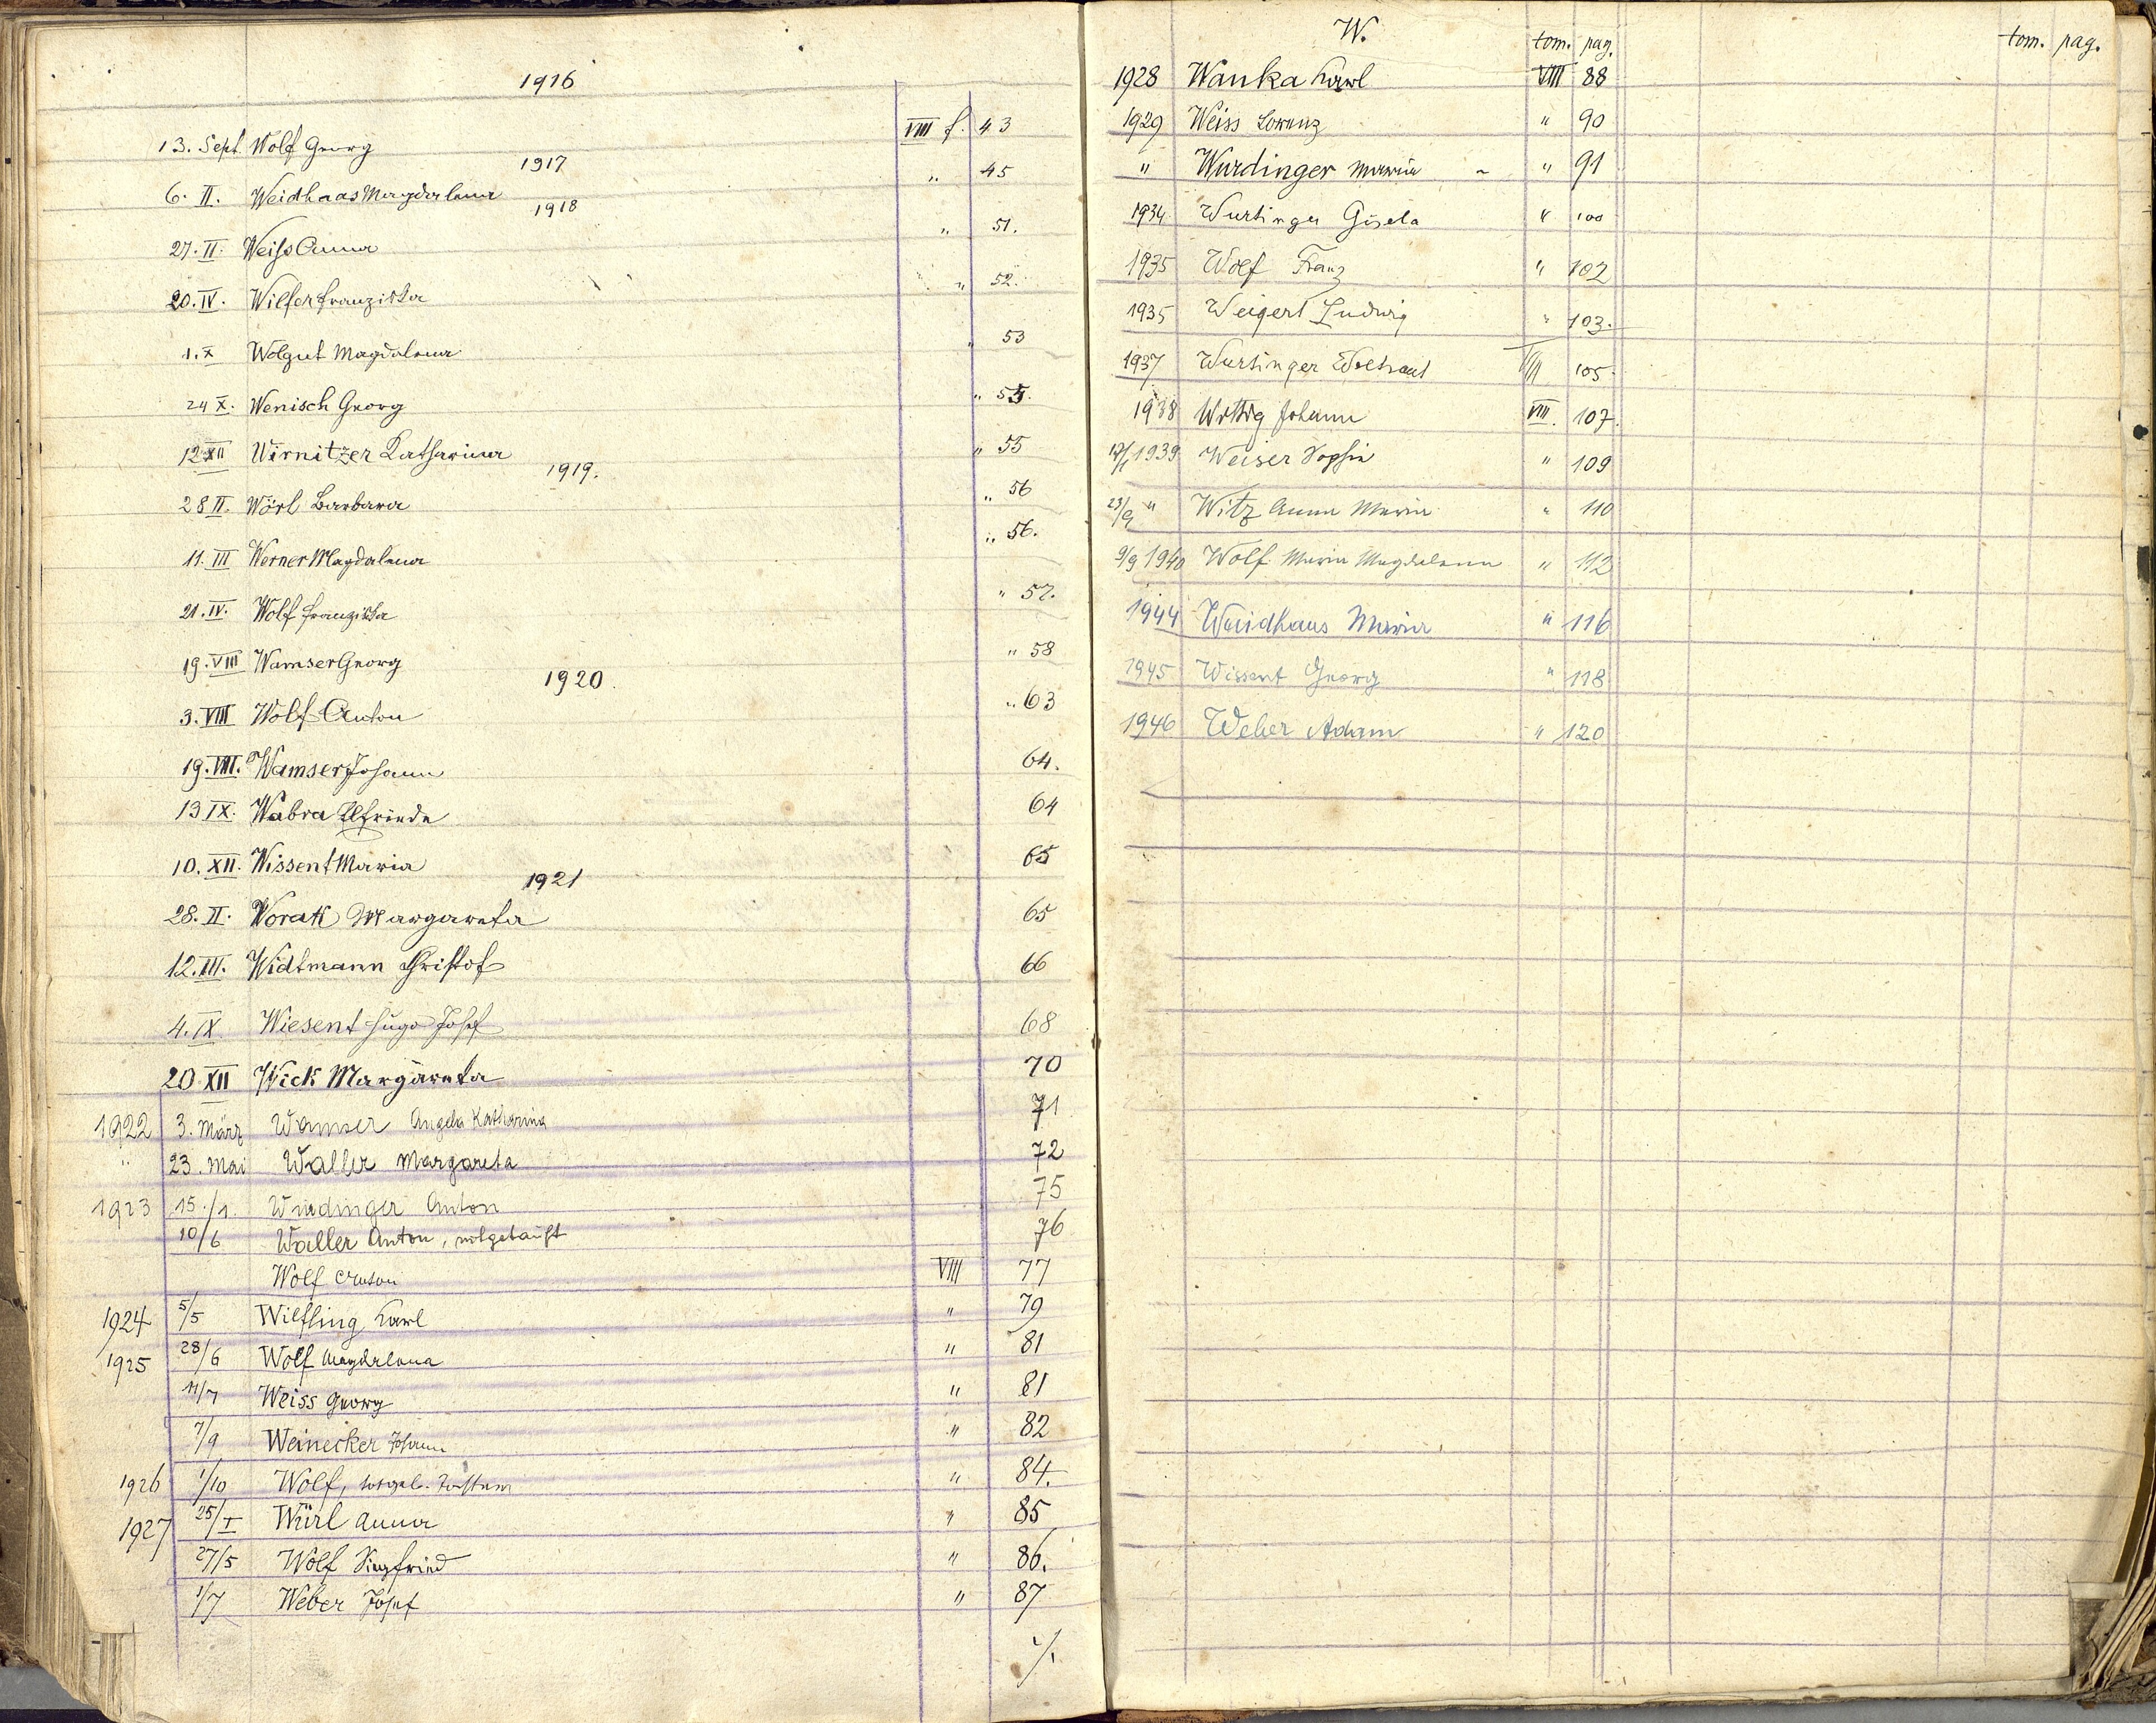 1916
13. Sept. Wolf Georg VIII f. 43
1917
6. II. Weidhaas Magdalena " 45
1918
27. II. Weiß Anna " 51.
20. IV. Wilfer Franziska " 52.
1. X Wolgut Magdalena " 53
24 X. Wenisch Georg "
12 XII Wirnitzer Katharina " 55
1919.
28 II. Wörl Barbara " 56
11. III Werner Magdalena " 56.
21. IV. Wolf Franziska " 57.
19. VIII Wamser Georg " 58
1920.
3. VIII Wolf Anton " 63
19. VIII. Wamser Johann 64.
13 IX. Wabra Elfriede 64
10. XII. Wissent Maria 65
1921
28. II. Worak Margareta 65
12. III. Widtmann Christof 66
4. IX Wiesent Hugo Josef 68
20 XII Wick Margareta 70
1922 3. März Wamser Angela Katharina 71
" 23. Mai Waller Margareta 72
1923 15./1. Wirdinger Anton 75
10/6 Waller Anton, notgetauft 76
Wolf Anton VIII 77
1924 5/5 Wilfling Karl " 79
1925 28/6 Wolf Magdalena " 81
11/7 Weiss Georg " 81
7/9 Weinecker Johann " 82
1926 1/10 Wolf, totgeb. " 84.
1927 25/I Würl Anna " 85
27/5 Wolf Siegfried " 86.
1/7 Weber Josef " 87
./.
W. tom. pag. tom. pag.
1928 Wanka Karl VIII 88
1929 Weiss Lorenz " 90
" Wurdinger Maria " 91
1934 Wurtinger Gisela " 100
1935 Wolf Franz " 102
1935 Weigert Ludwig " 103.
1937 Wurtinger Waltraut VIII 105.
1938 Wittig Johann VIII. 107.
1939 Weiser Sophie " 109
23/9 " Witz Anna Maria " 110
9/9 1940 Wolf Maria Magdalena " 112
1944 Waidhaus Maria " 116
1945 Wissent Georg " 118
1946 Weber Adam " 120